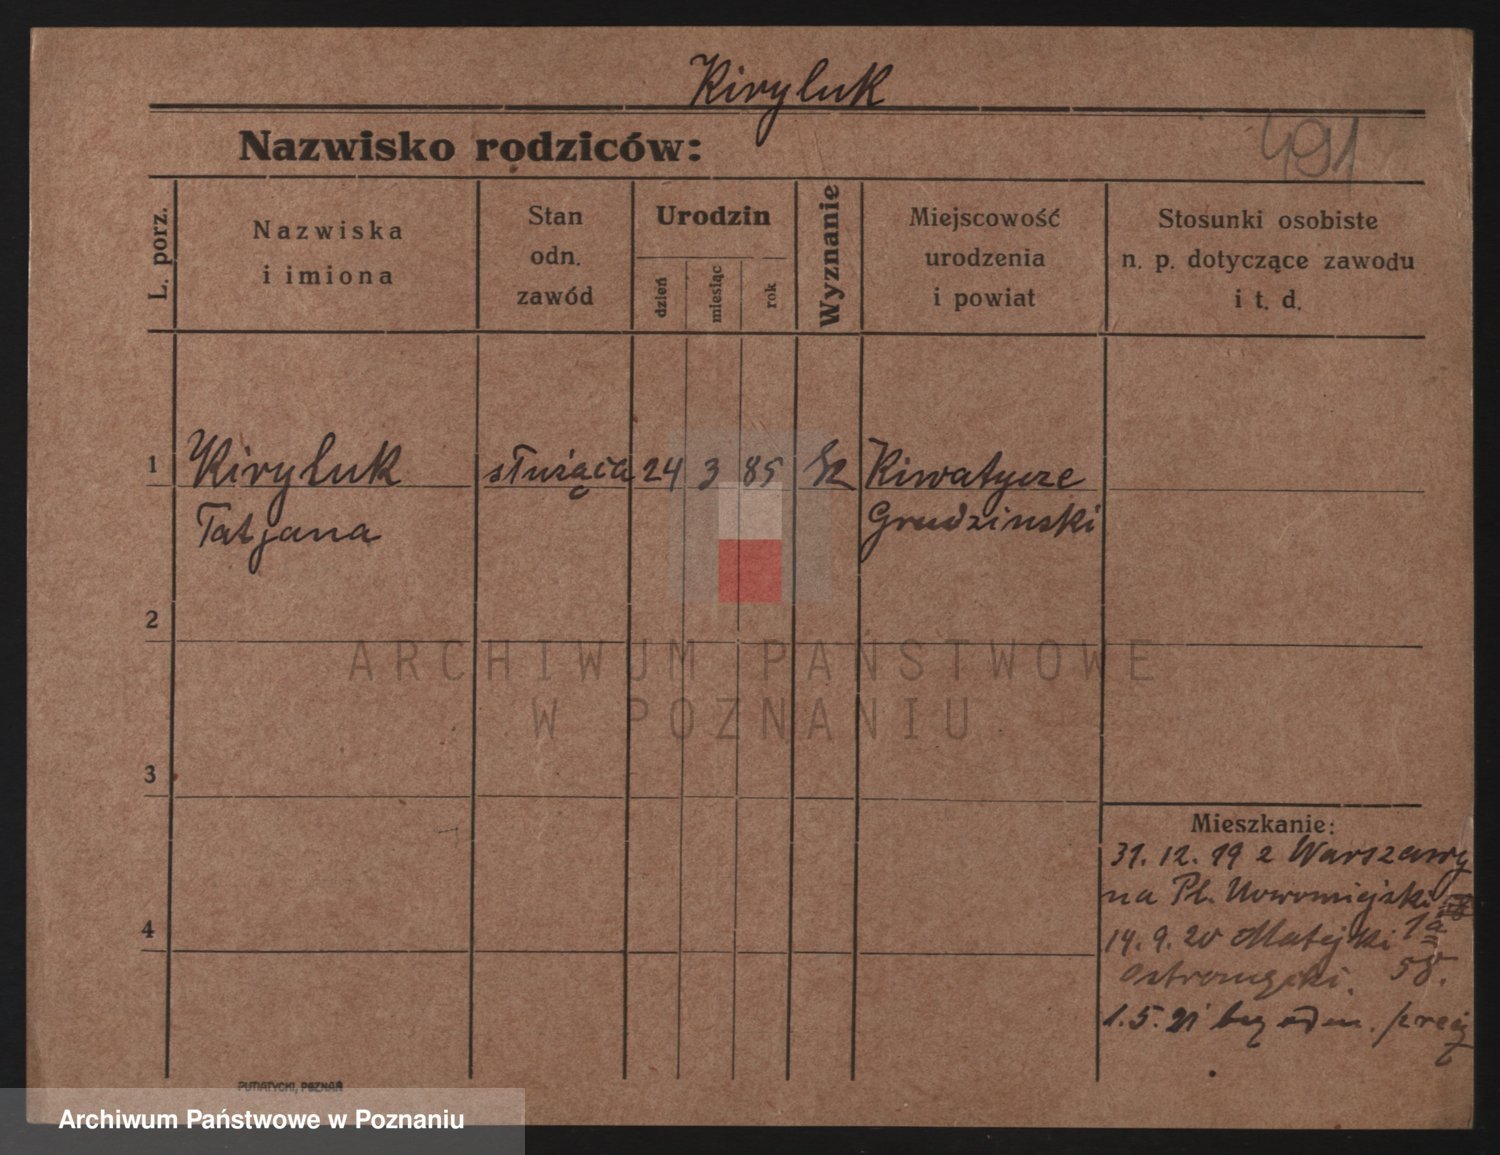 Kiryluk
Nazwisko rodziców:
491
L. porz.
Nazwiska
i imiona
Stan
odn.
zawód
Urodzin
dzień
miesiąc
rok
Wyznanie
Miejscowość
urodzenia
i powiat
Stosunki osobiste
n. p. dotyczące zawodu
i t. d.
1
Kiryluk
Tatjana
służąca
24
3
85
Kiwatycze
Grudzinski
2
ARCHIWUM PAŃSTWOWE
W POZNANIU
3
4
Mieszkanie:
31. 12. 19 z Warszawy
na Pl. Nowomiejski
1a
14. 9. 20 Matejki
58.
1. 5. 21 bez odm.
PUTIATYCKI, POZNAŃ
Archiwum Państwowe w Poznaniu